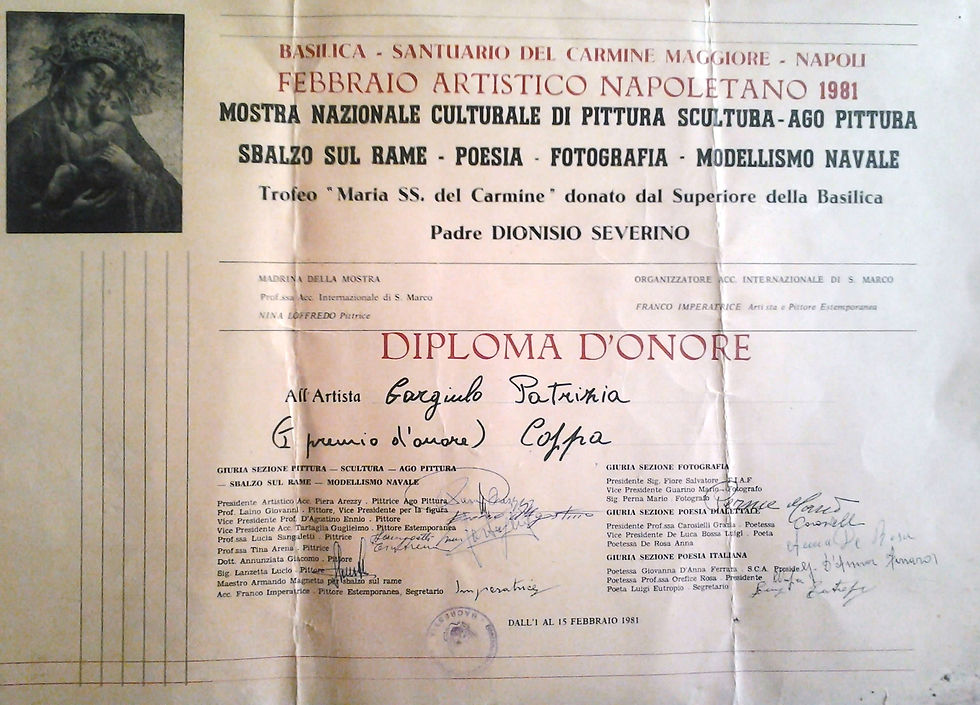 BASILICA - SANTUARIO DEL CARMINE MAGGIORE - NAPOLI
FEBBRAIO ARTISTICO NAPOLETANO 1981
MOSTRA NAZIONALE CULTURALE DI PITTURA SCULTURA-AGO PITTURA
SBALZO SUL RAME - POESIA - FOTOGRAFIA - MODELLISMO NAVALE
Trofeo "Maria SS. del Carmine" donato dal Superiore della Basilica
Padre DIONISIO SEVERINO
MADRINA DELLA MOSTRA
Prof.ssa Acc. Internazionale di S. Marco
NINA LOFFREDO Pittrice
ORGANIZZATORE ACC. INTERNAZIONALE DI S. MARCO
FRANCO IMPERATRICE Artista e Pittore Estemporanea
DIPLOMA D'ONORE
All'Artista Gargiulo Patrizia
(I premio d'onore) Coppa
GIURIA SEZIONE PITTURA — SCULTURA — AGO PITTURA
— SBALZO SUL RAME — MODELLISMO NAVALE
Presidente Artistico Acc. Piera Arezzy - Pittrice Ago Pittura
Prof. Laino Giovanni - Pittore, Vice Presidente per la figura
Vice Presidente Prof. D'Agatino Ennio - Pittore
Vice Presidente Acc. Tartaglia Guglielmo - Pittore Estemporanea
Prof.ssa Lucia Sangaletti - Pittrice
Prof.ssa Tina Arena - Pittrice
Dott. Annunziata Giacomo - Pittore
Sig. Lanzetta Lucio - Pittore
Maestro Armando Magnetta per sbalzo sul rame
Acc. Franco Imperatrice - Pittore Estemporanea, Segretario
Imperatrice
GIURIA SEZIONE FOTOGRAFIA
Presidente Sig. Fiore Salvatore F.I.A.F
Vice Presidente Guarino Mario - Fotografo
Sig. Perna Mario - Fotografo
GIURIA SEZIONE POESIA DIALETTALE
Presidente Prof.ssa Carosielli Grazia - Poetessa
Vice Presidente De Luca Bossa Luigi - Poeta
Poetessa De Rosa Anna
Anna De Rosa
GIURIA SEZIONE POESIA ITALIANA
Poetessa Giovanna D'Anna Ferrara - S.C.A.
Poetessa Prof.ssa Orefice Rosa - Presidente
Poeta Luigi Eutropio - Segretario
DALL'1 AL 15 FEBBRAIO 1981